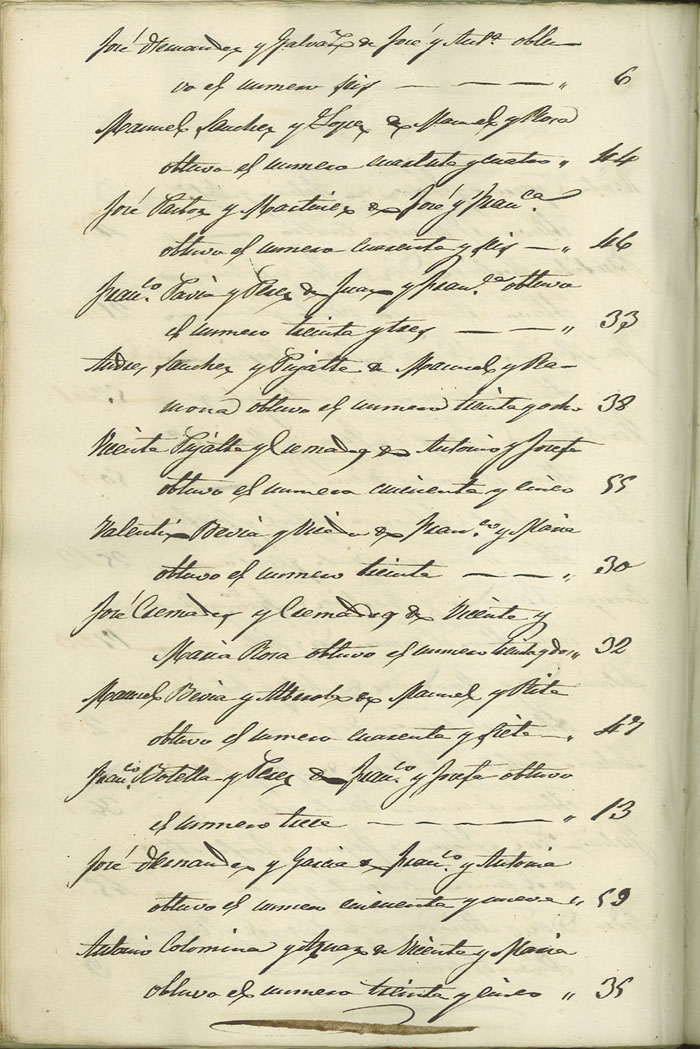 José Hernandez y Galvañ de José y Ant.ª obtu-
vo el numero seis — — — — „ 6
Manuel Sanchez y Lopez de Manuel y Rosa
obtuvo el numero cuarenta y cuatro „ 44
José Pastor y Martinez de José y Fran.ca
obtuvo el numero cuarenta y seis — „ 46
Fran.co Pavia y Perez de Juan y Fran.ca obtuvo
el numero treinta y tres — — „ 33
Andres Sanchez y Pujalte de Manuel y Ra-
mona obtuvo el numero treinta y ocho 38
Vicente Pujalte y Cremades de Antonio y Josefa
obtuvo el numero cincuenta y cinco 55
Valentin Bevia y de Fran.co y Maria
obtuvo el numero treinta — — „ 30
José Cremades y Cremades de Vicente y
Maria Rosa obtuvo el numero treinta y dos „ 32
Manuel Bevia y de Manuel y Rita
obtuvo el numero cuarenta y siete — „ 47
Fran.co Botella y Perez de Fran.co y Josefa obtuvo
el numero trece — — — — „ 13
José Hernandez y Garcia de Fran.co y Antonia
obtuvo el numero cincuenta y nueve „ 59
Antonio Colomina y Aznar de Vicente y Maria
obtuvo el numero treinta y cinco „ 35